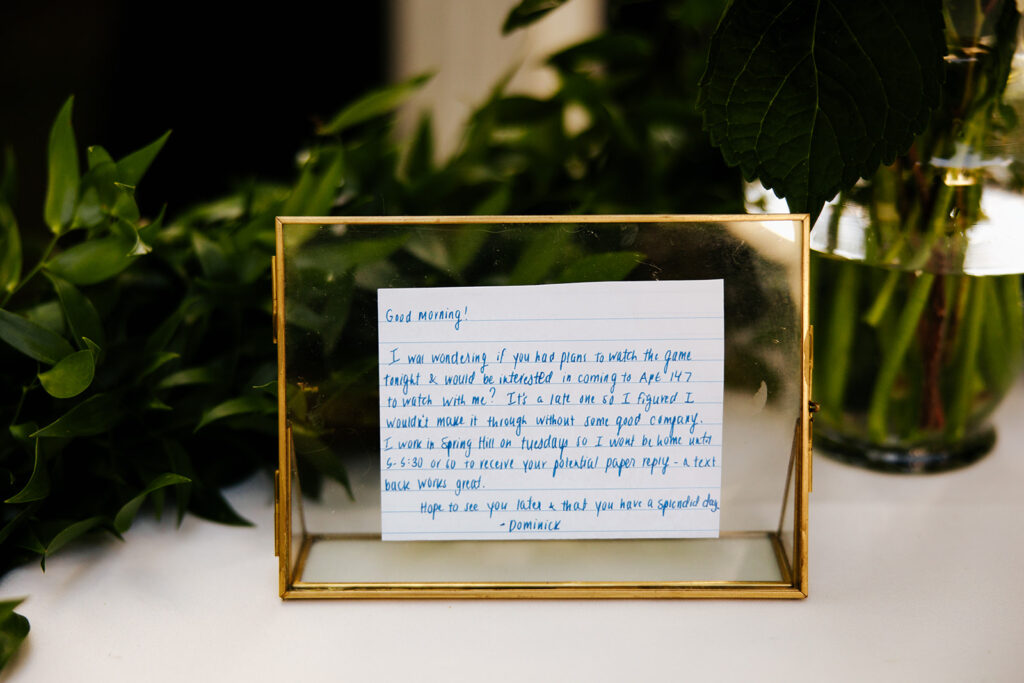 Good morning!
I was wondering if you had plans to watch the game
tonight & would be interested in coming to Apt 147
to watch with me? It's a late one so I figured I
wouldn't make it through without some good company.
I work in Spring Hill on tuesdays so I wont be home until
5-5:30 or so to receive your potential paper reply - a text
back works great.
Hope to see you later & that you have a splendid day.
- Dominick